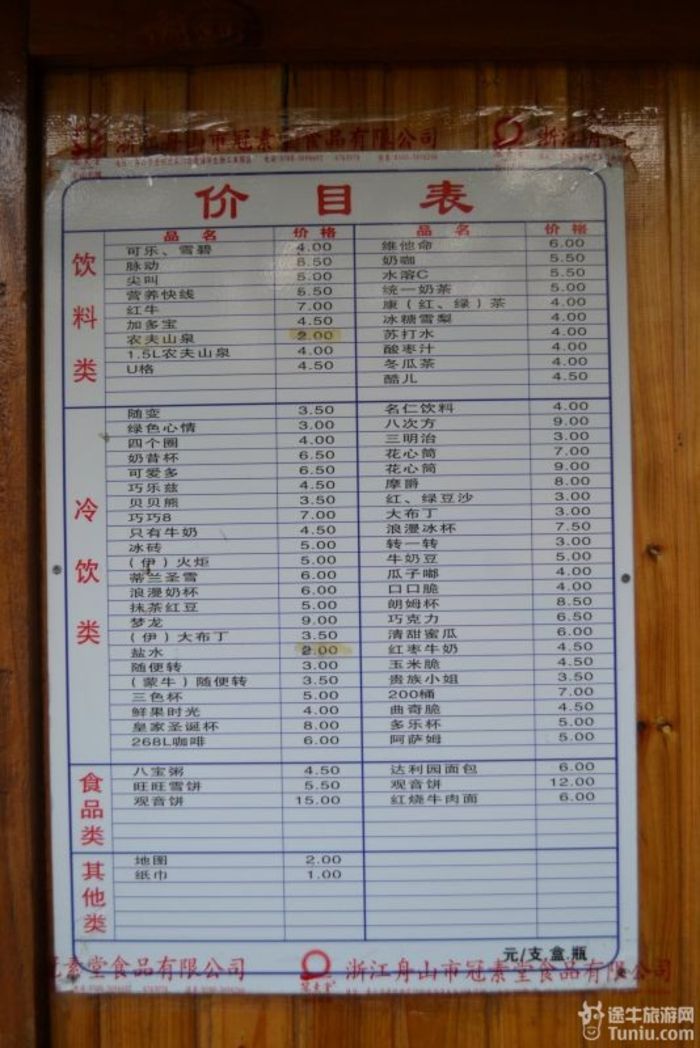 浙江舟山市冠素堂食品有限公司 浙江舟山
价目表
品名 价格 品名 价格
饮料类
可乐、雪碧 4.00 维他命 6.00
脉动 8.50 奶咖 5.50
尖叫 5.00 水溶C 5.50
营养快线 5.50 统一奶茶 5.00
红牛 7.00 康(红、绿)茶 4.00
加多宝 4.50 冰糖雪梨 4.00
农夫山泉 2.00 苏打水 4.00
1.5L农夫山泉 4.00 酸枣汁 4.00
U格 4.50 冬瓜茶 4.00
酷儿 4.50
冷饮类
随变 3.50 名仁饮料 4.00
绿色心情 3.00 八次方 9.00
四个圈 4.00 三明治 3.00
奶昔杯 6.50 花心筒 7.00
可爱多 6.50 花心筒 9.00
巧乐兹 4.50 摩爵 8.00
贝贝熊 3.50 红、绿豆沙 3.00
巧巧8 7.00 大布丁 3.00
只有牛奶 4.50 浪漫冰杯 7.50
冰砖 5.00 转一转 3.00
(伊)火炬 5.00 牛奶豆 5.00
蒂兰圣雪 6.00 瓜子嘟 4.00
浪漫奶杯 6.00 口口脆 4.00
抹茶红豆 5.00 朗姆杯 8.50
梦龙 9.00 巧克力 6.50
(伊)大布丁 3.50 清甜蜜瓜 6.00
盐水 2.00 红枣牛奶 4.50
随便转 3.00 玉米脆 4.50
(蒙牛)随便转 3.50 贵族小姐 3.50
三色杯 5.00 200桶 7.00
鲜果时光 4.00 曲奇脆 4.50
皇家圣诞杯 8.00 多乐杯 5.00
268L咖啡 6.00 阿萨姆 5.00
食品类
八宝粥 4.50 达利园面包 6.00
旺旺雪饼 5.50 观音饼 12.00
观音饼 15.00 红烧牛肉面 6.00
其他类
地图 2.00
纸巾 1.00
元/支,盒,瓶
冠素堂食品有限公司 浙江舟山市冠素堂食品有限公司
途牛旅游网
Tuniu.com